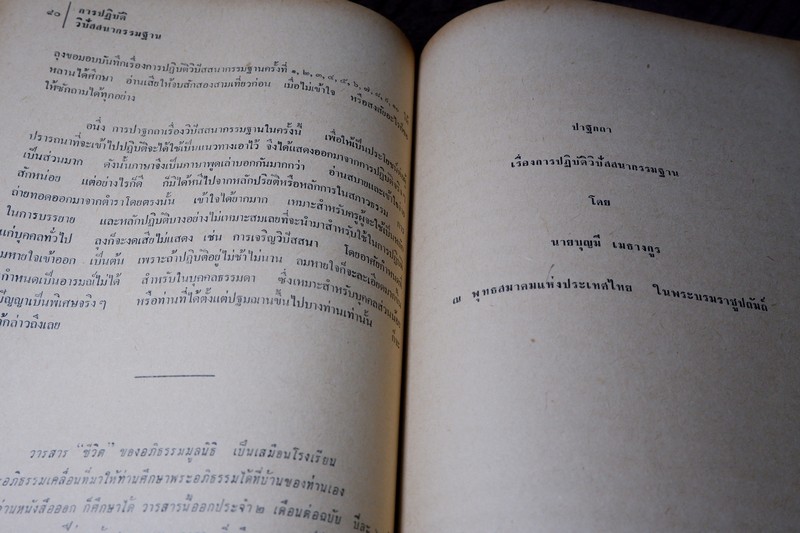 ๘๐ การปฏิบัติ
วิปัสสนากรรมฐาน
ลุงขอมอบบันทึกเรื่องการปฏิบัติวิปัสสนากรรมฐานครั้งที่ ๑, ๒, ๓, ๔, ๕, ๖, ๗, ๘, ๙,
หลานได้ศึกษา อ่านเสียให้จบสักสองสามเที่ยวก่อน เมื่อไม่เข้าใจ หรือสงสัยอะไร
ให้ซักถามได้ทุกอย่าง
อนึ่ง การปาฐกถาเรื่องวิปัสสนากรรมฐานในครั้งนี้ เพื่อให้เป็นประโยชน์
ปรารถนาที่จะเข้าไปปฏิบัติจะได้ใช้เป็นแนวทางเอาไว้ จึงได้แสดงออกมาจากการปฏิบัติจริง
เป็นส่วนมาก ดังนั้นภาษาจึงเป็นภาษาพูดเล่าบอกกันมากกว่า อ่านสบายและเข้าใจได้
สักหน่อย แต่อย่างไรก็ดี ก็มิได้หนีไปจากหลักปริยัติหรือหลักการในสภาวธรรม การ
ถ่ายทอดออกมาจากตำราโดยตรงนั้น เข้าใจได้ยากมาก เหมาะสำหรับครูผู้จะใช้เป็น
ในการบรรยาย และหลักปฏิบัติบางอย่างไม่เหมาะสมเลยที่จะนำมาสำหรับใช้ในการปฏิบัติ
แก่บุคคลทั่วไป ลุงก็จะงดเสียไม่แสดง เช่น การเจริญวิปัสสนา โดยอาศัยกำหนด
มหายใจเข้าออก เป็นต้น เพราะถ้าปฏิบัติอยู่ไม่ช้าไม่นาน ลมหายใจก็จะละเอียด
กำหนดเป็นอารมณ์ไม่ได้ สำหรับในบุคคลธรรมดา ซึ่งเหมาะสำหรับบุคคล
ปัญญาเป็นพิเศษจริงๆ หรือท่านที่ได้ตั้งแต่ปฐมฌานขึ้นไปบางท่านเท่านั้น ก็จะ
กล่าวถึงเลย
วารสาร "ชีวิต" ของอภิธรรมมูลนิธิ เป็นเสมือนโรงเรียน
อภิธรรมเคลื่อนที่มาให้ท่านศึกษาพระอภิธรรมได้ที่บ้านของท่านเอง
านหนังสือออก ก็ศึกษาได้ วารสารนี้ออกประจำ ๒ เดือนต่อฉบับ ปีละ
ปาฐกถา
เรื่องการปฏิบัติวิปัสสนากรรมฐาน
โดย
นายบุญมี เมธางกูร
ณ พุทธสมาคมแห่งประเทศไทย ในพระบรมราชูปถัมภ์